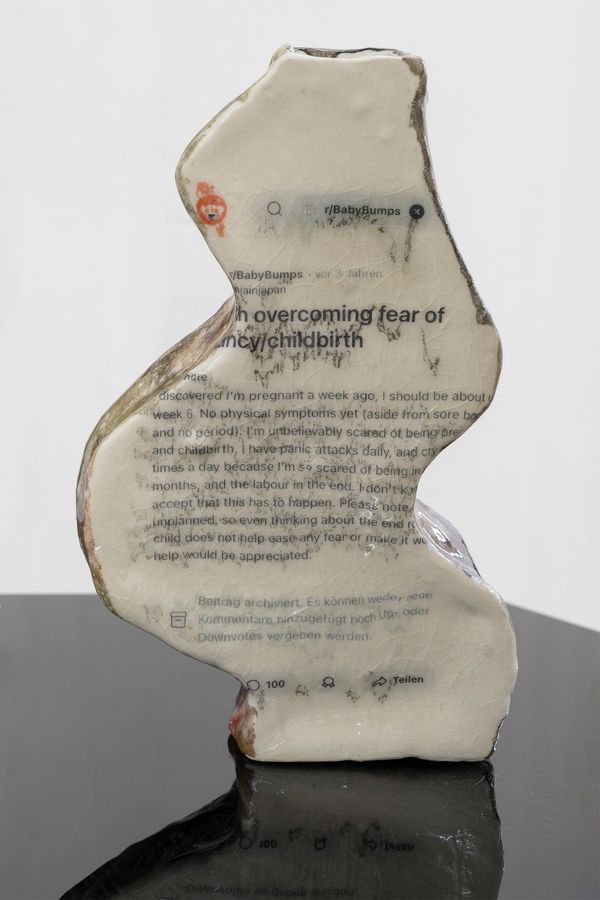 r/BabyBumps
r/BabyBumps · vor 3 Jahren
overcoming fear of
ncy/childbirth
discovered I'm pregnant a week ago, I should be about
week 6. No physical symptoms yet (aside from sore
and no period). I'm unbelievably scared of being
and childbirth, I have panic attacks daily, and cry
times a day because I'm so scared of being in
months, and the labour in the end. I don't
accept that this has to happen. Please note,
unplanned, so even thinking about the end
child does not help ease any fear or make it
help would be appreciated.
Beitrag archiviert. Es können weder neue
Kommentare hinzugefügt noch Up- oder
Downvotes vergeben werden.
100 Teilen